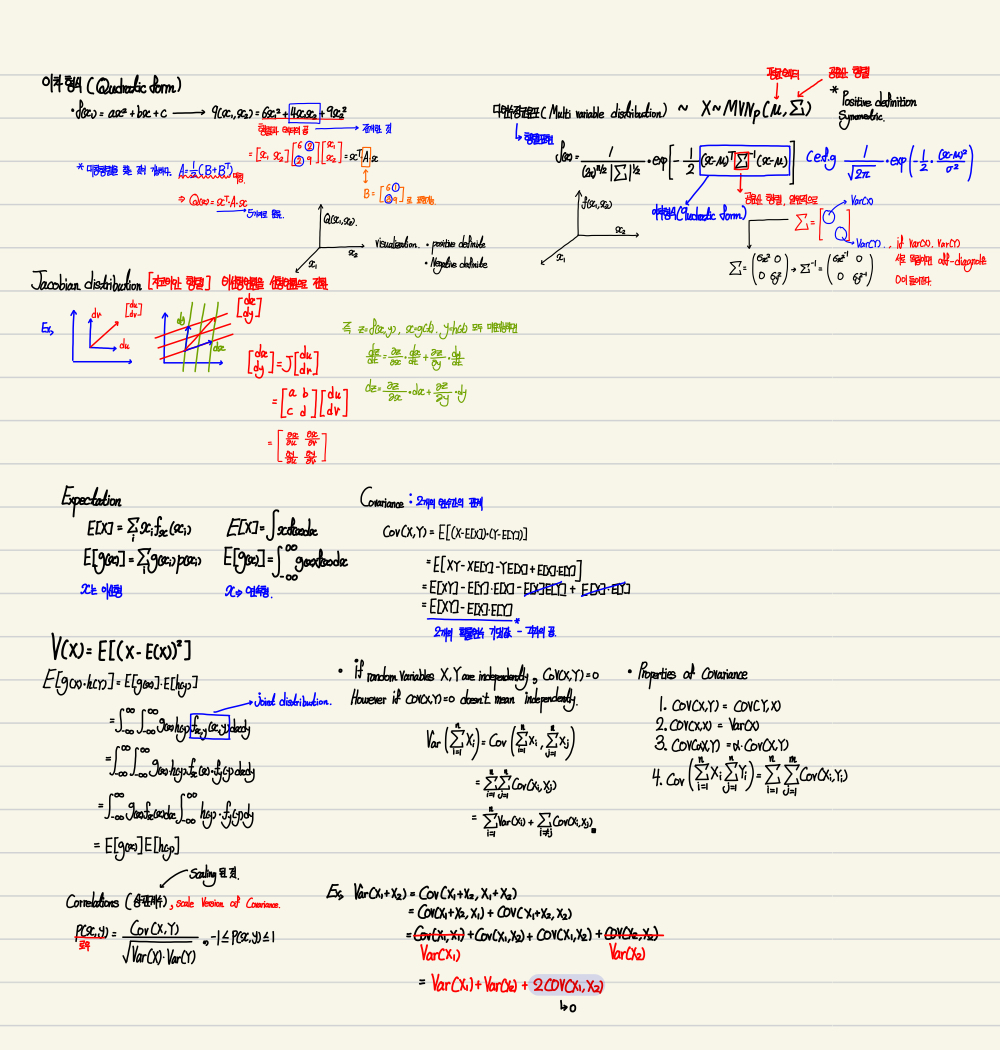 이차 형식 (Quadratic form)
• f(x) = ax² + bx + c → q(x₁, x₂) = 6x₁² + 4x₁x₂ + 9x₂²
= [x₁ x₂] [6 2; 2 9] [x₁; x₂] = xᵀAx
* A = ½(B + Bᵀ)
⇒ Q(x) = xᵀA·x
B = [
Q(x₁, x₂)
x₂
x₁
Visualization. • positive definite
• Negative definite
(Multi variable distribution) ~ X ~ MVNp(μ, Σ)
* Positive definition
Symmetric.
f(x) = 1 / ((2π)^{n/2} |Σ|^{1/2}) • exp[-½ (x-μ)ᵀ Σ⁻¹ (x-μ)]
1/√2π • exp(-½ • (x-μ)²/σ²)
(Quadratic form)
f(x₁, x₂)
x₂
x₁
Σ = [ ]
Var(X)
Var(Y)., if Var(X), Var(Y)
off-diagonale
0이 들어간다.
Jacobian distribution [자코비안 행렬]
Ex,
dv
[du; dv]
du
dy
dx
[dx; dy]
[dx; dy] = J [du; dv]
= [a b; c d] [du; dv]
= [∂x/∂u ∂x/∂v; ∂y/∂u ∂y/∂v]
즉 z = f(x,y), x = g(t), y = h(t) 모두 미분가능하면
dz/dt = ∂z/∂x • dx/dt + ∂z/∂y • dy/dt
dz = ∂z/∂x • dx + ∂z/∂y • dy
Expectation
E[X] = Σᵢ xᵢ fₓ(xᵢ)
E[X] = ∫ x f(x) dx
E[g(x)] = Σᵢ g(xᵢ) p(xᵢ)
E[g(x)] = ∫_{-∞}^{∞} g(x) f(x) dx
X는 이산형
X⇒ 연속형.
Covariance : 2개의 변수간의 관계
Cov(X,Y) = E[(X-E[X])•(Y-E[Y])]
= E[XY - XE[Y] - YE[X] + E[X]·E[Y]]
= E[XY] - E[Y]·E[X] - E[X]E[Y] + E[X]·E[Y]
= E[XY] - E[X]·E[Y] *
2개의 확률변수 기댓값 - 각각의 곱.
V(X) = E[(X - E(X))²]
E[g(x)·h(y)] = E[g(x)]·E[h(y)]
Joint distribution.
= ∫_{-∞}^{∞} ∫_{-∞}^{∞} g(x) h(y) f_{x,y}(x,y) dxdy
= ∫_{-∞}^{∞} ∫_{-∞}^{∞} g(x) h(y) f_x(x)·f_y(y) dxdy
= ∫_{-∞}^{∞} g(x) f_x(x) dx ∫_{-∞}^{∞} h(y)·f_y(y) dy
= E[g(x)] E[h(y)]
• if random variables X, Y are independently, COV(X,Y) = 0
However if COV(X,Y) = 0 doesn't mean independently.
Var(Σᵢ₌₁ⁿ Xᵢ) = Cov(Σᵢ₌₁ⁿ Xᵢ, Σⱼ₌₁ⁿ Xⱼ)
= Σᵢ₌₁ⁿ Σⱼ₌₁ⁿ Cov(Xᵢ, Xⱼ)
= Σᵢ₌₁ⁿ Var(Xᵢ) + Σ_{i≠j} Cov(Xᵢ, Xⱼ) ■
• Properties of Covariance
1. COV(X,Y) = COV(Y,X)
2. COV(X,X) = Var(X)
3. COV(αX,Y) = α·Cov(X,Y)
4. Cov(Σᵢ₌₁ⁿ Xᵢ Σⱼ₌₁ⁿ Yⱼ) = Σᵢ₌₁ⁿ Σⱼ₌₁ⁿ Cov(Xᵢ, Yⱼ)
Scaling 된 것.
Correlations (상관계수), scale Version of Covariance.
ρ(x,y) = Cov(X,Y) / √(Var(X)·Var(Y)) , -1 ≤ ρ(x,y) ≤ 1
로우
Ex, Var(X₁+X₂) = Cov(X₁+X₂, X₁+X₂)
= Cov(X₁+X₂, X₁) + COV(X₁+X₂, X₂)
= Cov(X₁,X₁) + Cov(X₁,X₂) + COV(X₁,X₂) + COV(X₂,X₂)
Var(X₁) Var(X₂)
= Var(X₁) + Var(X₂) + 2COV(X₁,X₂)
↳ 0